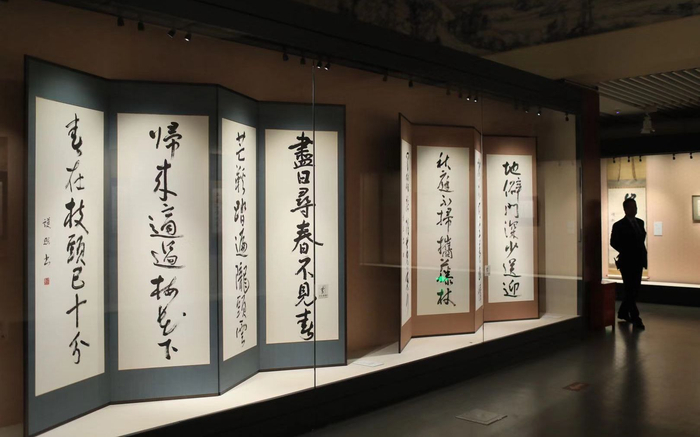 地僻門深少送迎
秋庭不掃攜藤杖
盡日尋春不見春
芒鞋踏遍隴頭雲
歸来適過梅花下
春在枝頭已十分